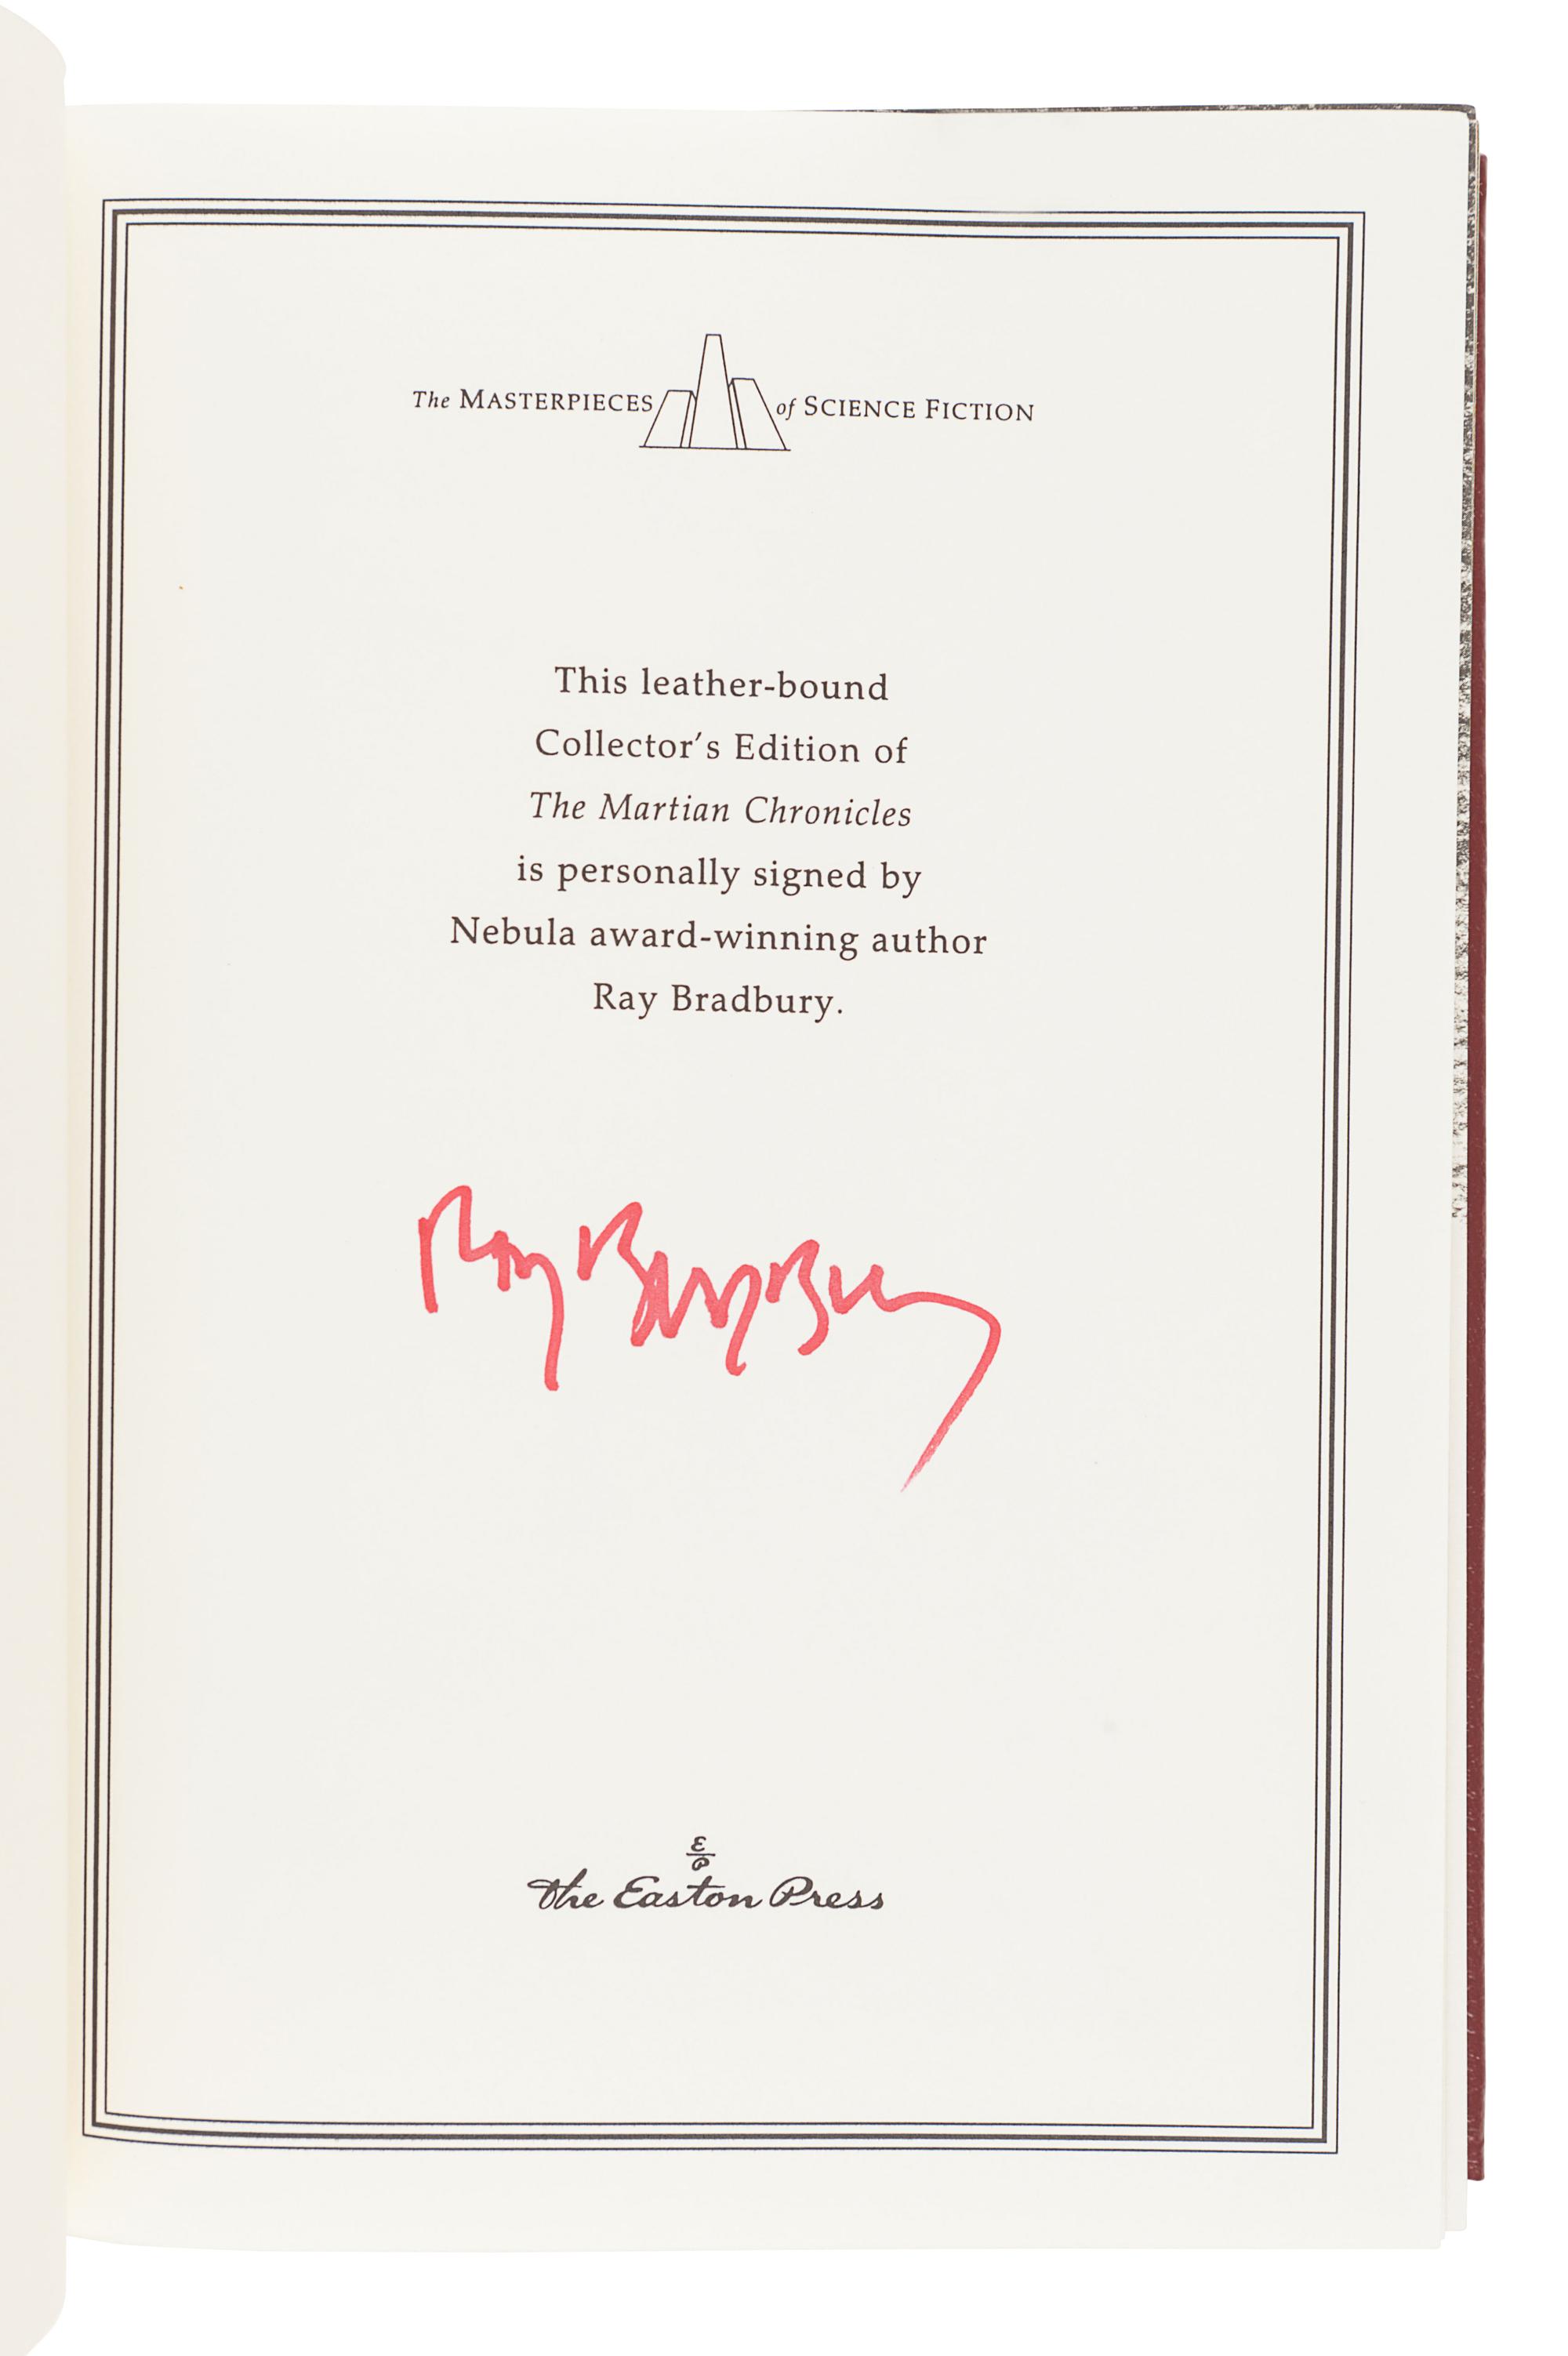 The MASTERPIECES of SCIENCE FICTION
This leather-bound
Collector's Edition of
The Martian Chronicles
is personally signed by
Nebula award-winning author
Ray Bradbury.
Ray Bradbury
E
P
The Easton Press